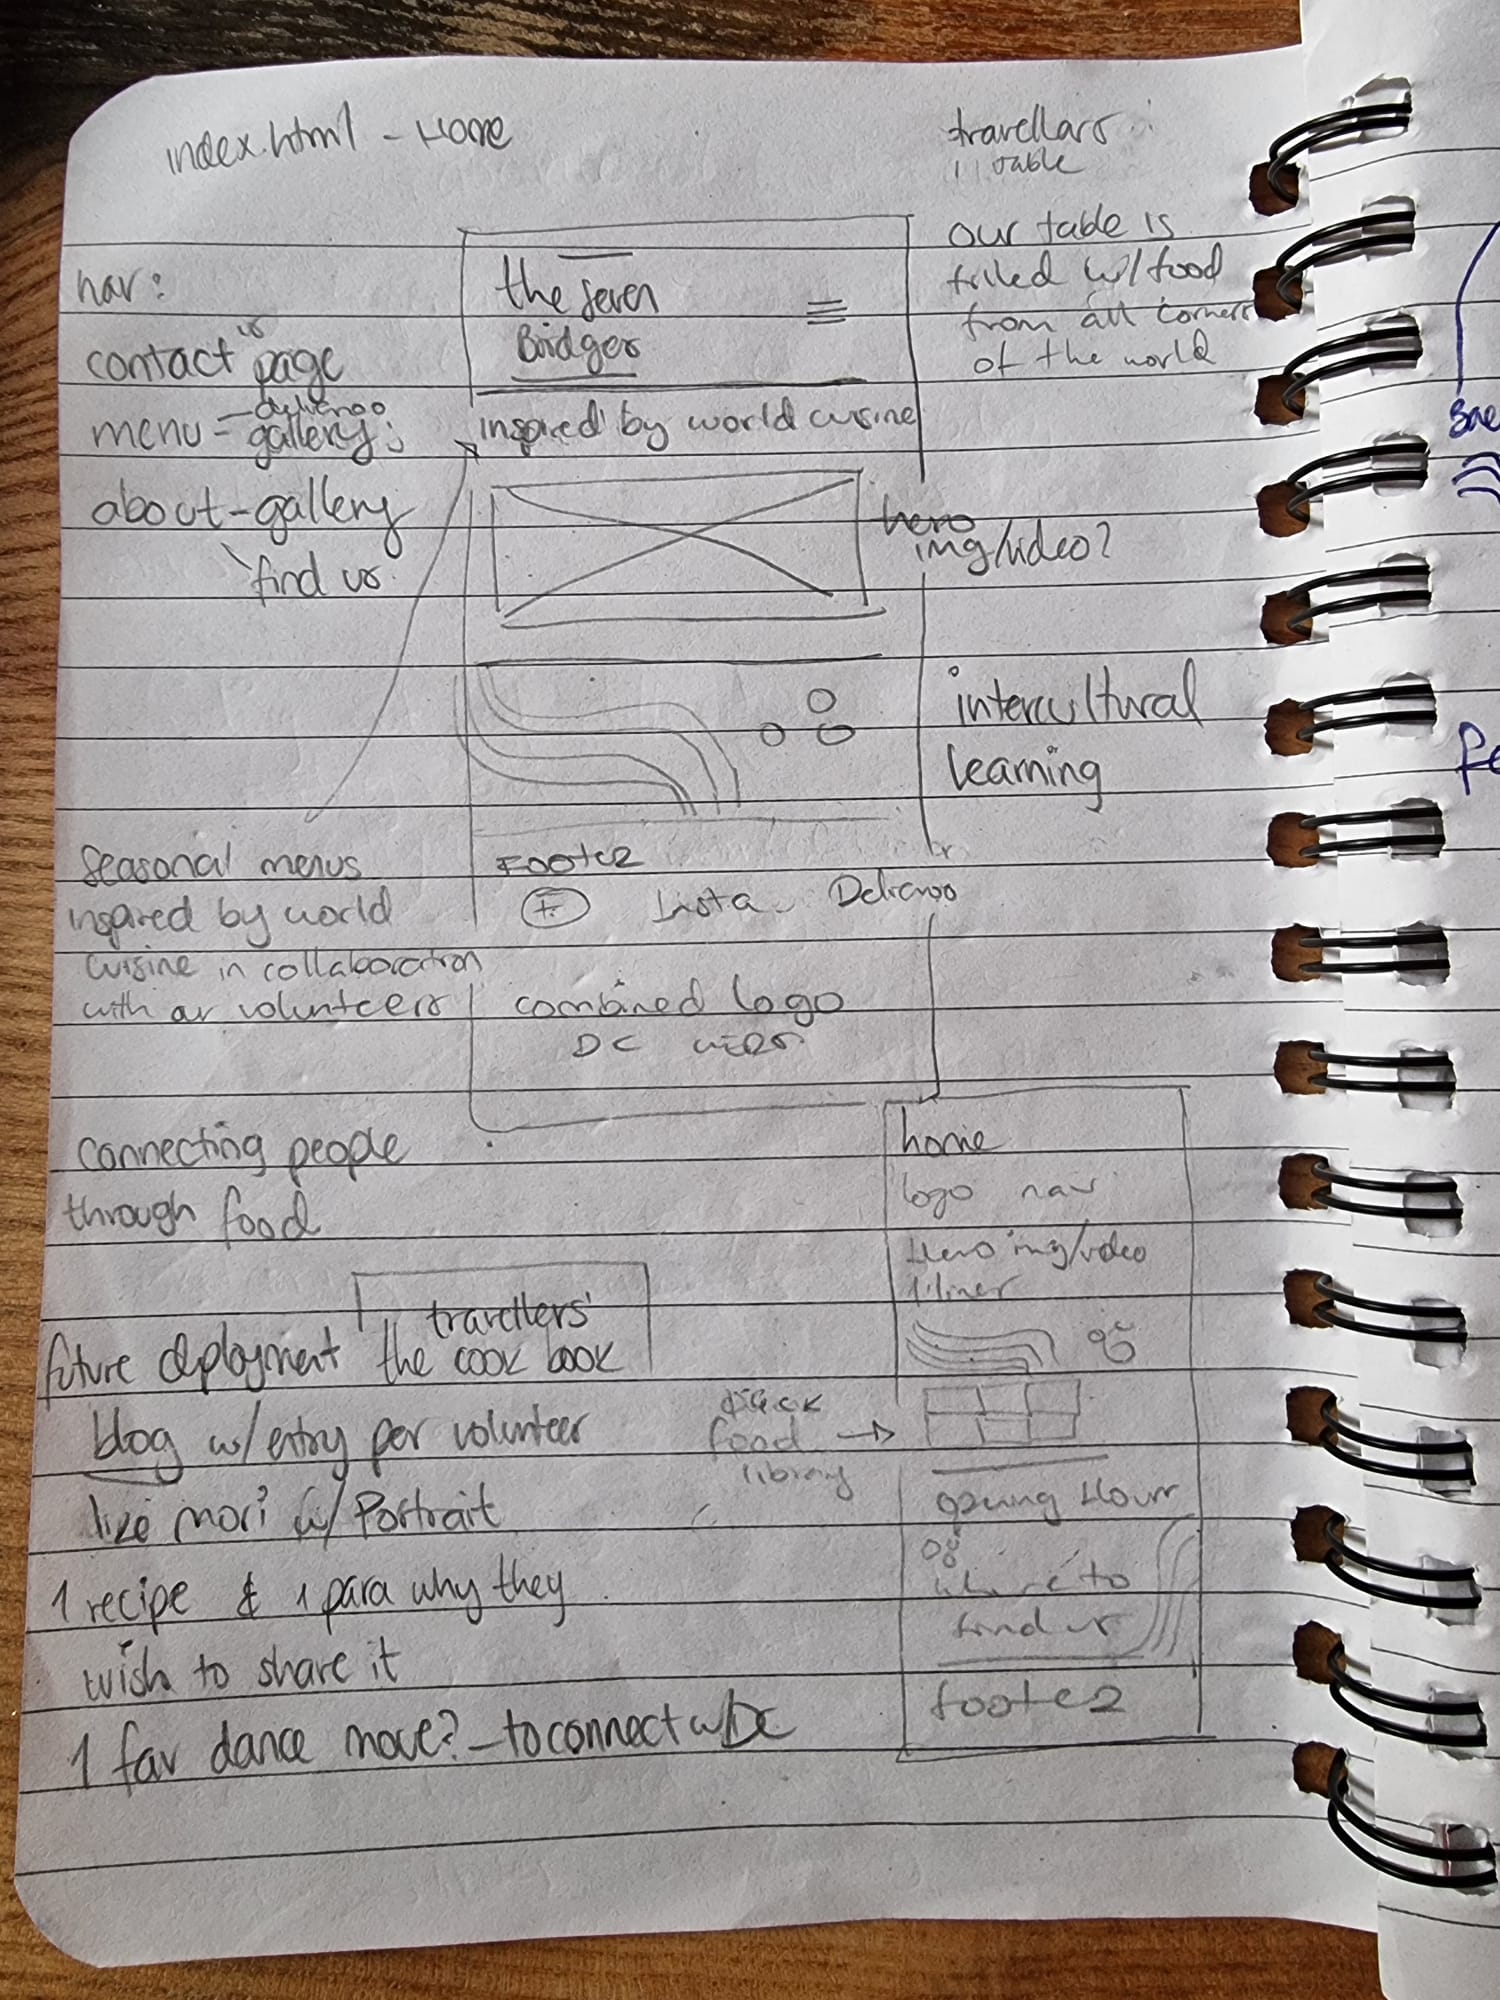 index.html - Home
travellars
table
our table is
filled w/food
from all corners
of the world
nav:
contact us page
menu - deliveroo
gallery
about - gallery
find us
the seven
Bridges
inspired by world cuisine
hero
img/video?
intercultural
learning
seasonal menus
inspired by world
cuisine in collaboration
with our volunteers
Footer
Insta Deliveroo
combined logo
DC
connecting people
through food
travellers'
future deployment the cook book
blog w/entry per volunteer
like mori w/ Portrait
1 recipe & 1 para why they
wish to share it
1 fav dance move? - to connect w/DC
home
logo nav
Hero img/video
1 liner
food
library
opening Hours
where to
find us
footer